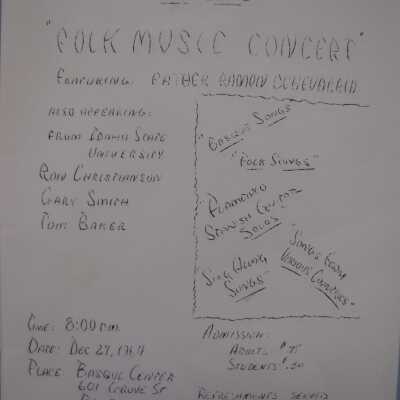 "FOLK MUSIC CONCERT"
FEATURING: FATHER RAMON ECHEVARRIA
ALSO APPEARING:
FROM IDAHO STATE
UNIVERSITY
RON CHRISTIANSON
GARY SMITH
TOM BAKER
"BASQUE SONGS
"FOLK SONGS"
FLAMENCO
SPANISH GUITAR
SOLOS
"SONGS FROM
VARIOUS COUNTRIES"
SING ALONG
SONGS"
TIME: 8:00 P.M.
DATE: DEC 27, 1964
PLACE: BASQUE CENTER
601 GROVE ST
ADMISSION:
ADULTS $.75
STUDENTS $.50
REFRESHMENTS SERVED